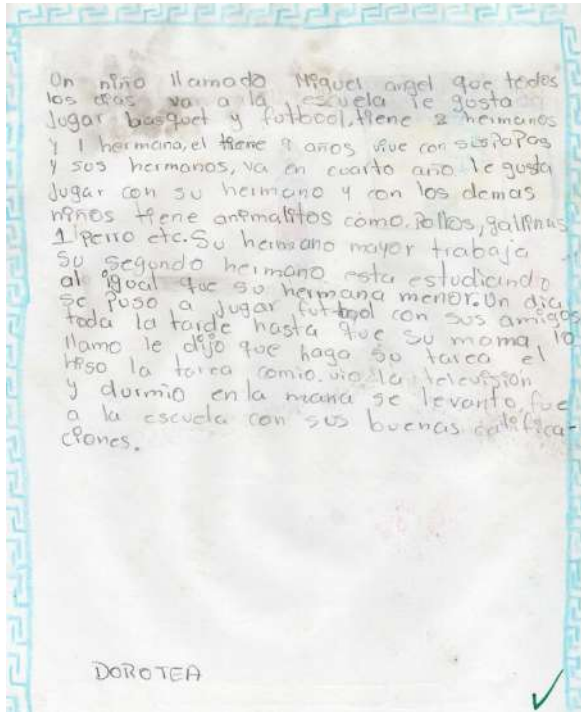 Un niño llamado Miguel angel que todos
los dias va a la escuela le gusta
Jugar basquet y futbool, tiene 2 hermanos
y 1 hermana, el tiene 9 años vive con sus PaPas
y sus hermanos, va en cuarto año le gusta
Jugar con su hermano y con los demas
niños tiene animalitos como. Pollos, gallinas
1 Perro etc. Su hermano mayor trabaja
su segundo hermano esta estudiando
al igual que su hermana menor. Un dia
se Puso a jugar futbool con sus amigos
toda la tarde hasta que su mama lo
llamo le dijo que haga su tarea el
hiso la tarea comio. vio la televisión
y durmio en la mana se levanto fue
a la escuela con sus buenas califica-
ciones.
DOROTEA